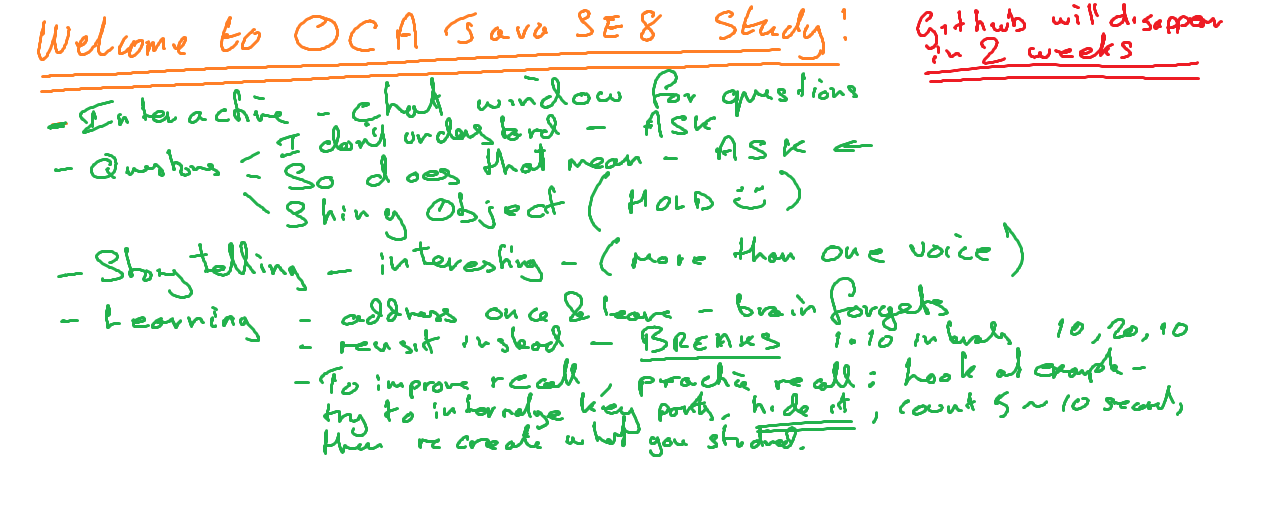 Welcome to OCA Java SE 8 Study!
Github will disappear
in 2 weeks
- Interactive - chat window for questions
- Questions - I don't understand - ASK
- So does that mean - ASK ←
Shiny Object (HOLD :))
- Story telling - interesting - (more than one voice)
- Learning - address once & leave - brain forgets
- revisit instead - BREAKS 1:10 intervals 10, 20, 10
- To improve recall, practice recall: Look at example -
try to internalize key parts, hide it, count 5 ~ 10 second,
then recreate what you studied.